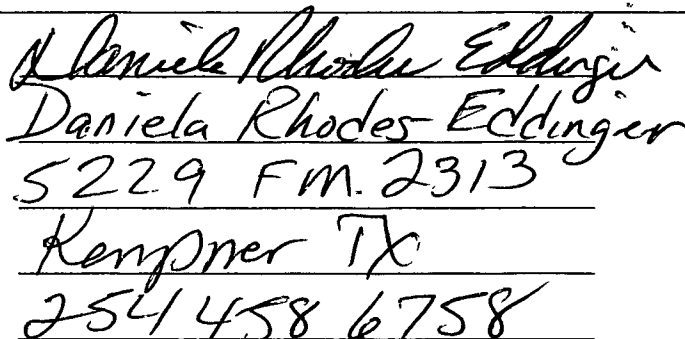 Daniela Rhodes Eddinger
Daniela Rhodes-Eddinger
5229 FM. 2313
Kempner TX
254 458 6758